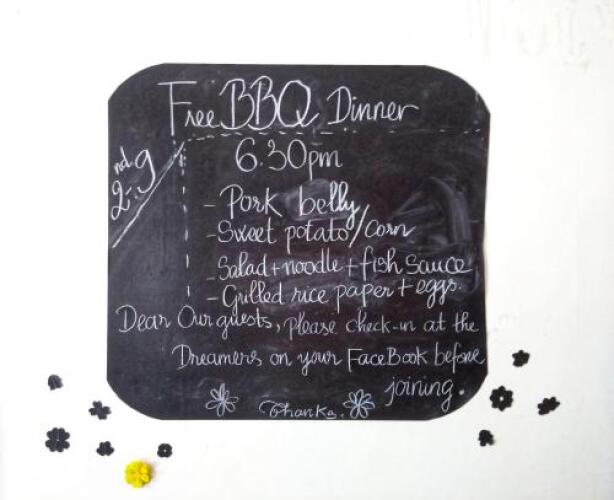 Free BBQ Dinner
2nd.9
6.30pm
- Pork belly
- Sweet potato/corn
- Salad + noodle + fish sauce
- Grilled rice paper + eggs.
Dear Our guests, please check-in at the
Dreamers on your FaceBook before
joining.
Thanks.